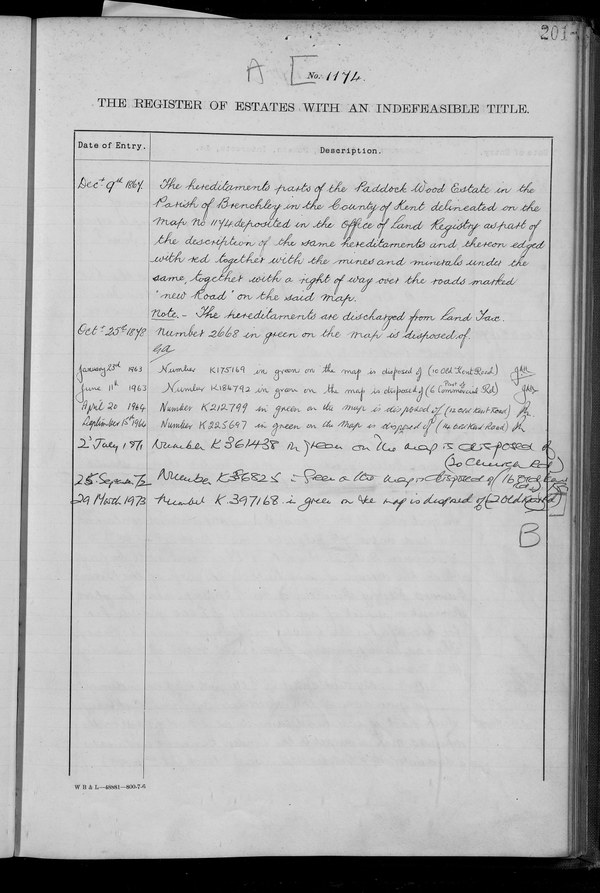 201
A [ No. 1174.
THE REGISTER OF ESTATES WITH AN INDEFEASIBLE TITLE.
Date of Entry. Description.
Decr 9th 1867. The hereditaments parts of the Paddock Wood Estate in the
Parish of Brenchley in the County of Kent delineated on the
Map No 1174 deposited in the Office of Land Registry as part of
the description of the same hereditaments and thereon edged
with red together with the mines and minerals under the
same, together with a right of way over the roads marked
"new Road" on the said Map.
Note.- The hereditaments are discharged from Land Tax.
Octr 25th 1878 Number 2668 in green on the map is disposed of.
January 23d 1963 Number K175169 in green on the map is disposed of (10 Old Kent Road)
June 11th 1963 Number K184792 in green on the map is disposed of (Part of 6 Commercial Rd)
April 20 1964 Number K212799 in green on the map is disposed of (12 Old Kent Road)
September 15th 1964 Number K225697 in green on the map is disposed of (14 Old Kent Road)
2 July 1971 Number K361438 in green on the map is disposed of
(20 Church Rd)
25 Septem 72 Number K386825 in green on the map is disposed of (16 Old Kent
Rd)
29 March 1973 Number K397168 in green on the map is disposed of (2 Old Kent Rd)]
B
W B & L—46881—800-7-6